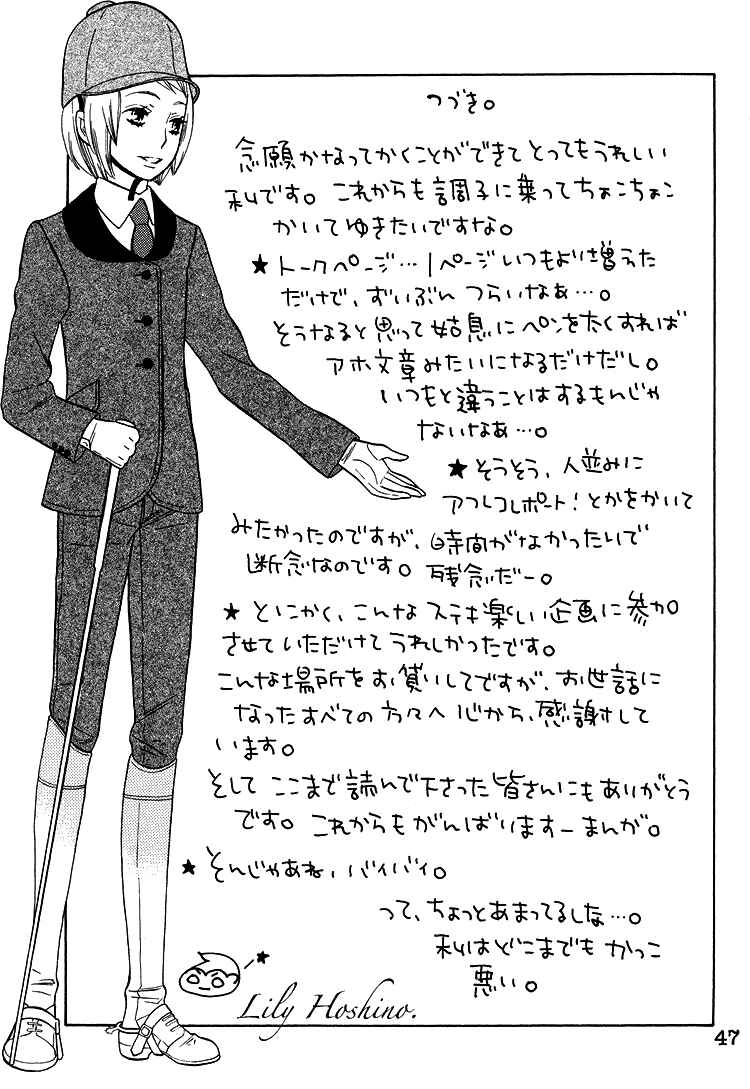 つづき。
念願かなってかくことができてとってもうれしい
私です。これからも調子に乗ってちょこちょこ
かいてゆきたいですな。
★トークページ…1ページいつもより増えた
だけで、ずいぶんつらいなぁ…。
そうなると思って姑息にペンを太くすれば
アホ文章みたいになるだけだし。
いつもと違うことはするもんじゃ
ないなぁ…。
★そうそう、人並みに
アフレコレポート!とかをかいて
みたかったのですが、時間がなかったいで
断念なのです。残念だー。
★とにかく、こんなステキ楽しい企画に参加
させていただけてうれしかったです。
こんな場所をお借いしてですが、お世話に
なったすべての方々へ心から、感謝して
います。
そしてここまで読んで下さった皆さんにもありがとう
です。これからもがんばりますーまんが。
★そんじゃあね、バイバイ。
って、ちょっとあまってるしな…。
私はどこまでもかっこ
悪い。
Lily Hoshino.
47